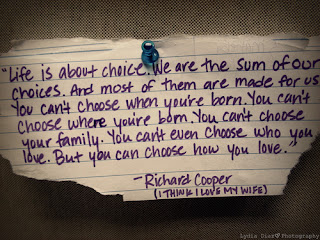 "Life is about choice. We are the sum of our
choices. And most of them are made for us.
You can't choose when you're born. You can't
choose where you're born. You can't choose
your family. You can't even choose who you
love. But you can choose how you love."
-Richard Cooper
(I THINK I LOVE MY WIFE)
Lydia Diaz Photography